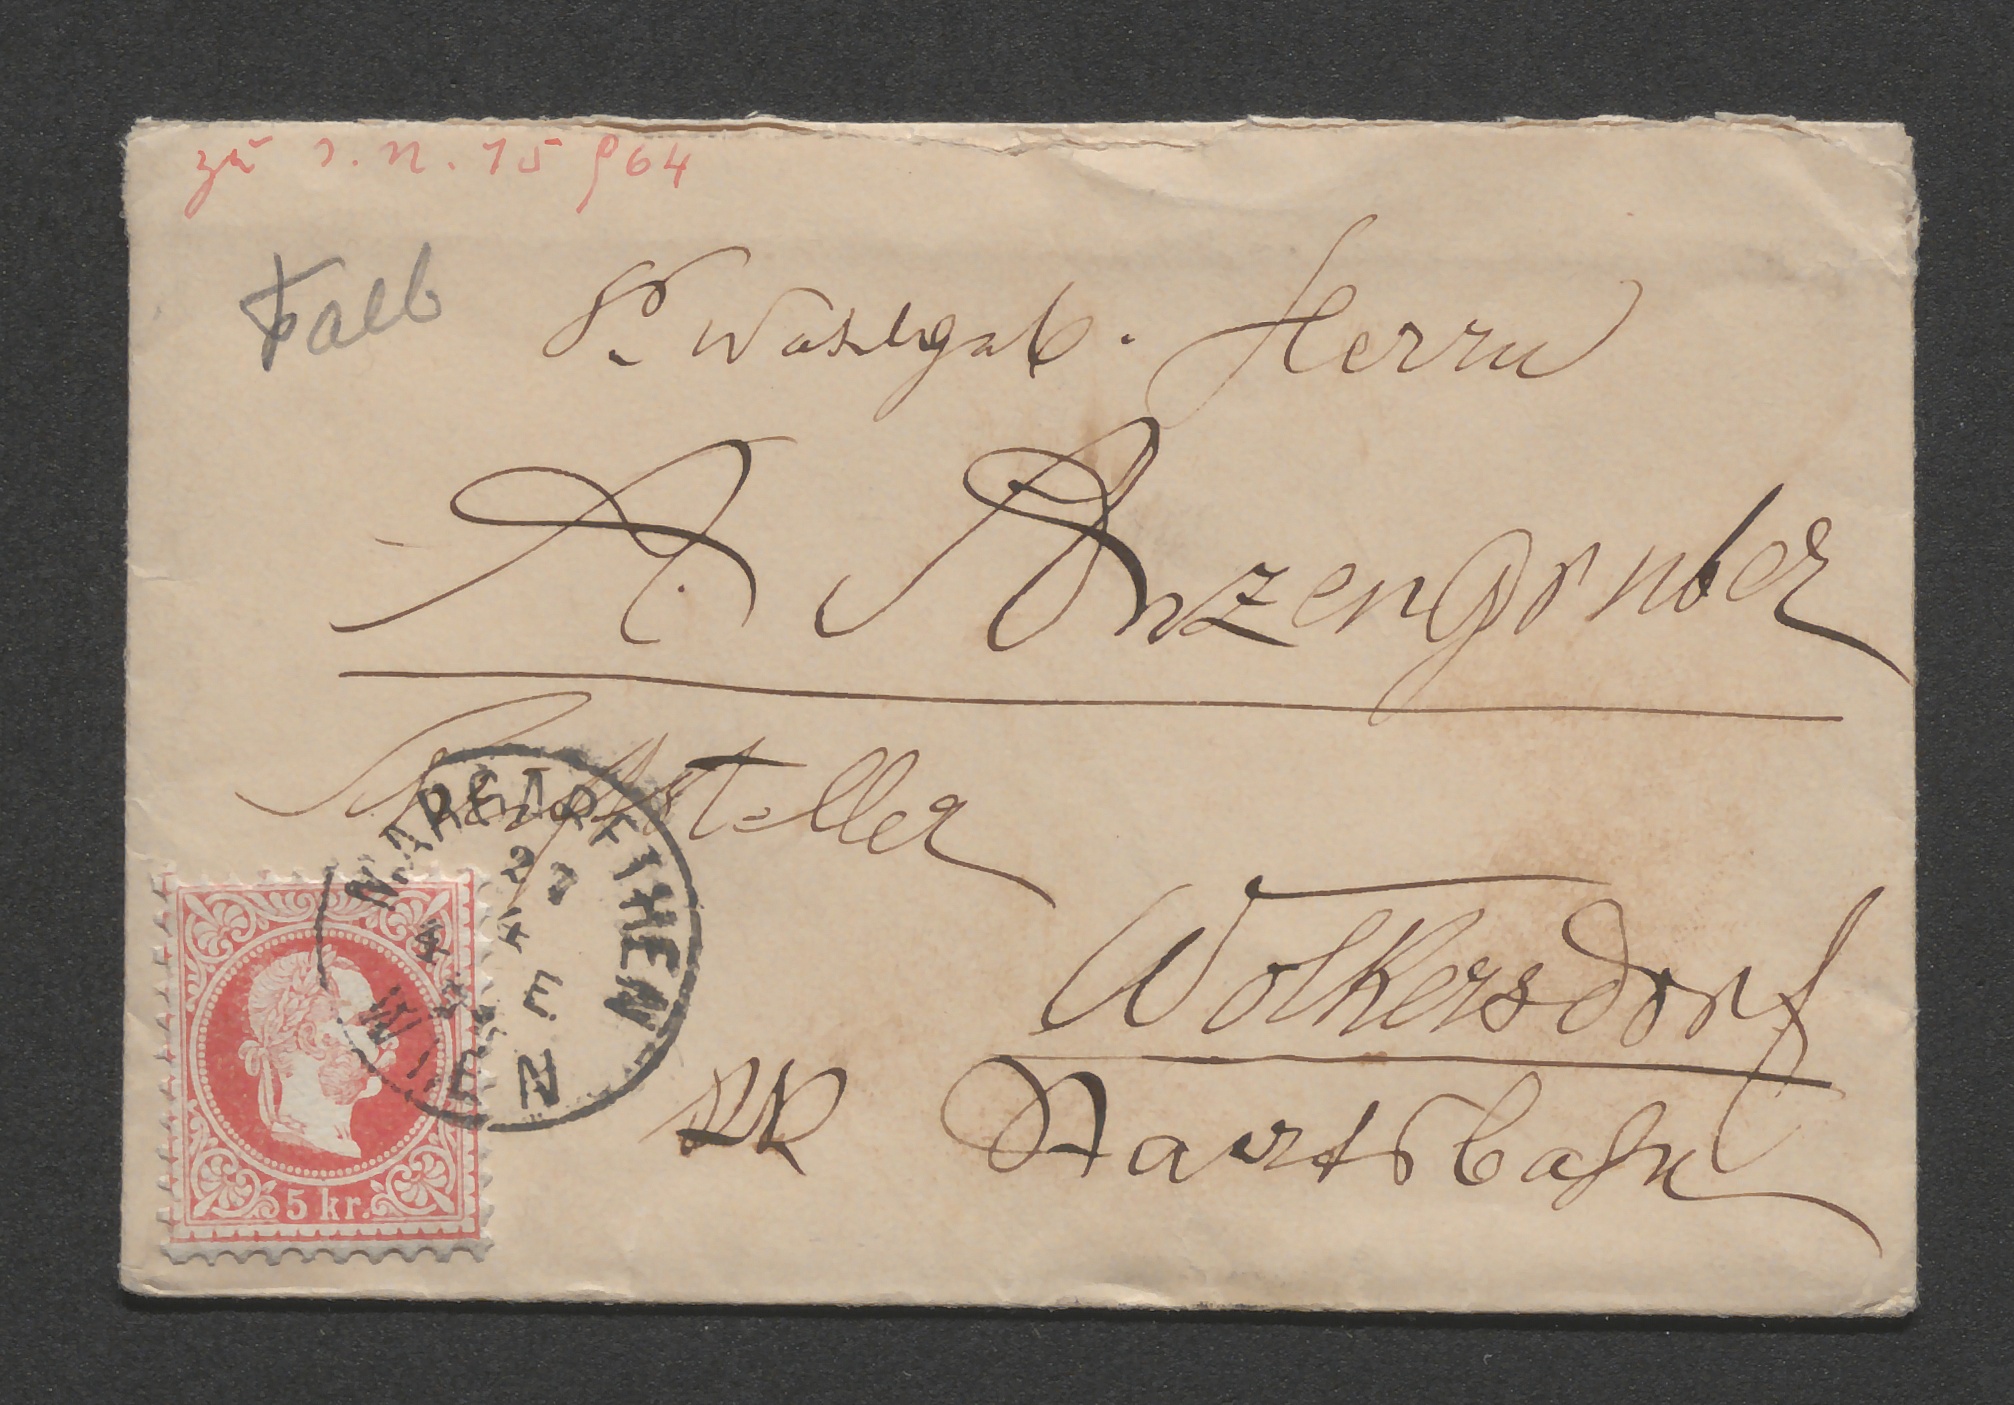 zu I.N. 15964
Falb
Sr Wohlgeb. Herrn
A. Anzengruber
Schriftsteller
Wolkersdorf
KK Staatsbahn
MARGARETHEN
WIEN
5 kr.